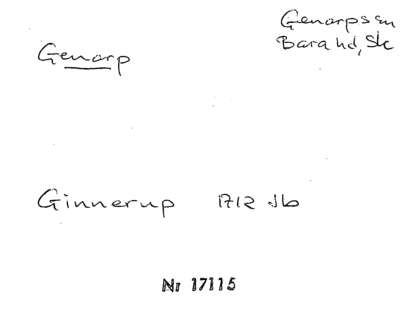 Genarps sn
Bara hd, Sk
Genarp
Ginnerup 1712 Jb
Nr 17115